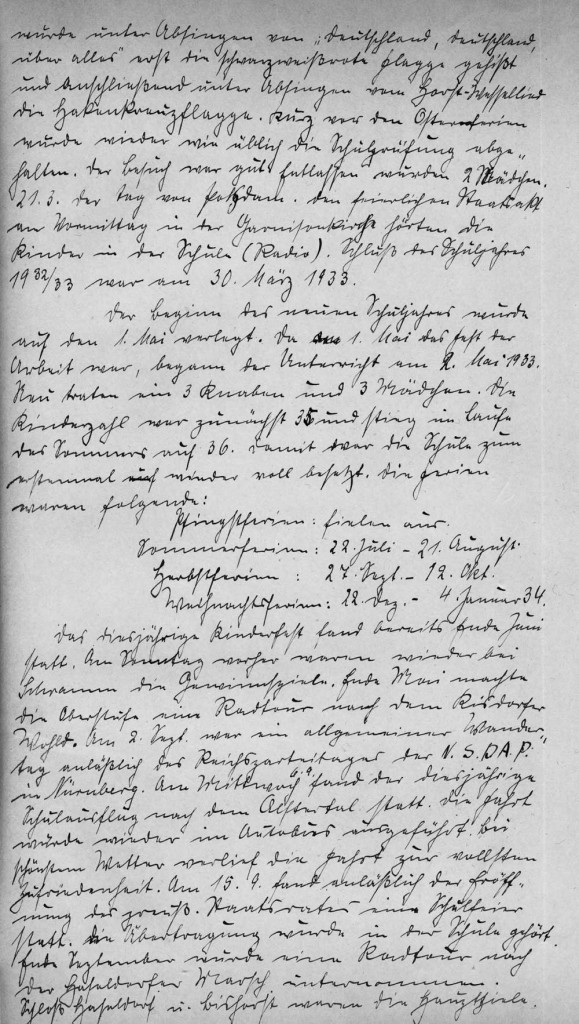 wurde unter Absingen von „Deutschland, Deutschland,
über alles“ erst die schwarzweißrote Flagge gehißt
und anschließend unter Absingen vom Horst-Wessellied
die Hakenkreuzflagge. Kurz vor den Osterferien
wurde wieder wie üblich die Schulprüfung abge-
halten. Der Besuch war gut. Entlassen wurden 2 Mädchen.
21.3. Der Tag von Potsdam. Den feierlichen Staatsakt
am Vormittag in der Garnisonkirche hörten die
Kinder in der Schule (Radio). Schluß des Schuljahres
1932/33 war am 30. März 1933.
Der Beginn des neuen Schuljahres wurde
auf den 1. Mai verlegt. Da am 1. Mai das Fest der
Arbeit war, begann der Unterricht am 2. Mai 1933.
Neu traten ein 3 Knaben und 3 Mädchen. Die
Kinderzahl war zunächst 35 und stieg im Laufe
des Sommers auf 36. Damit war die Schule zum
erstenmal wieder voll besetzt. Die Ferien
waren folgende:
Pfingstferien: fielen aus.
Sommerferien: 22. Juli – 21. August.
Herbstferien : 27. Sept. – 12. Okt.
Weihnachtsferien: 22. Dez. – 4. Januar 34.
Das diesjährige Kinderfest fand bereits Ende Juni
statt. Am Sonntag vorher waren wieder bei
Schramm die Gewinnspiele. Ende Mai machte
die Oberstufe eine Radtour nach dem Kisdorfer
Wohld. Am 2. Sept. war ein allgemeiner Wander-
tag anläßlich des Reichsparteitages der N.S.D.A.P.
in Nürnberg. Am Mittwoch 6.9. fand der diesjährige
Schulausflug nach dem Alstertal statt. Die Fahrt
wurde wieder im Autobus ausgeführt. Bei
schönstem Wetter verlief die Fahrt zur vollsten
Zufriedenheit. Am 15. 9. fand anläßlich der Eröff-
nung des preuß. Staatsrates eine Schulfeier
statt. Die Übertragung wurde in der Schule gehört.
Ende September wurde eine Radtour nach
der Haseldorfer Marsch unternommen.
Schloß Haseldorf u. Bishorst waren die Hauptziele.